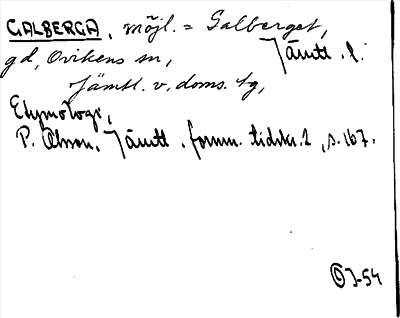 GALBERGA, möjl. = Galberget,
gd, Ovikens sn, Jämtl. l.
Jämtl. v. doms. tg,
Etymologi,
P. Olsson, Jämtl. fornm. tidskr. 2, s. 167.
J-54